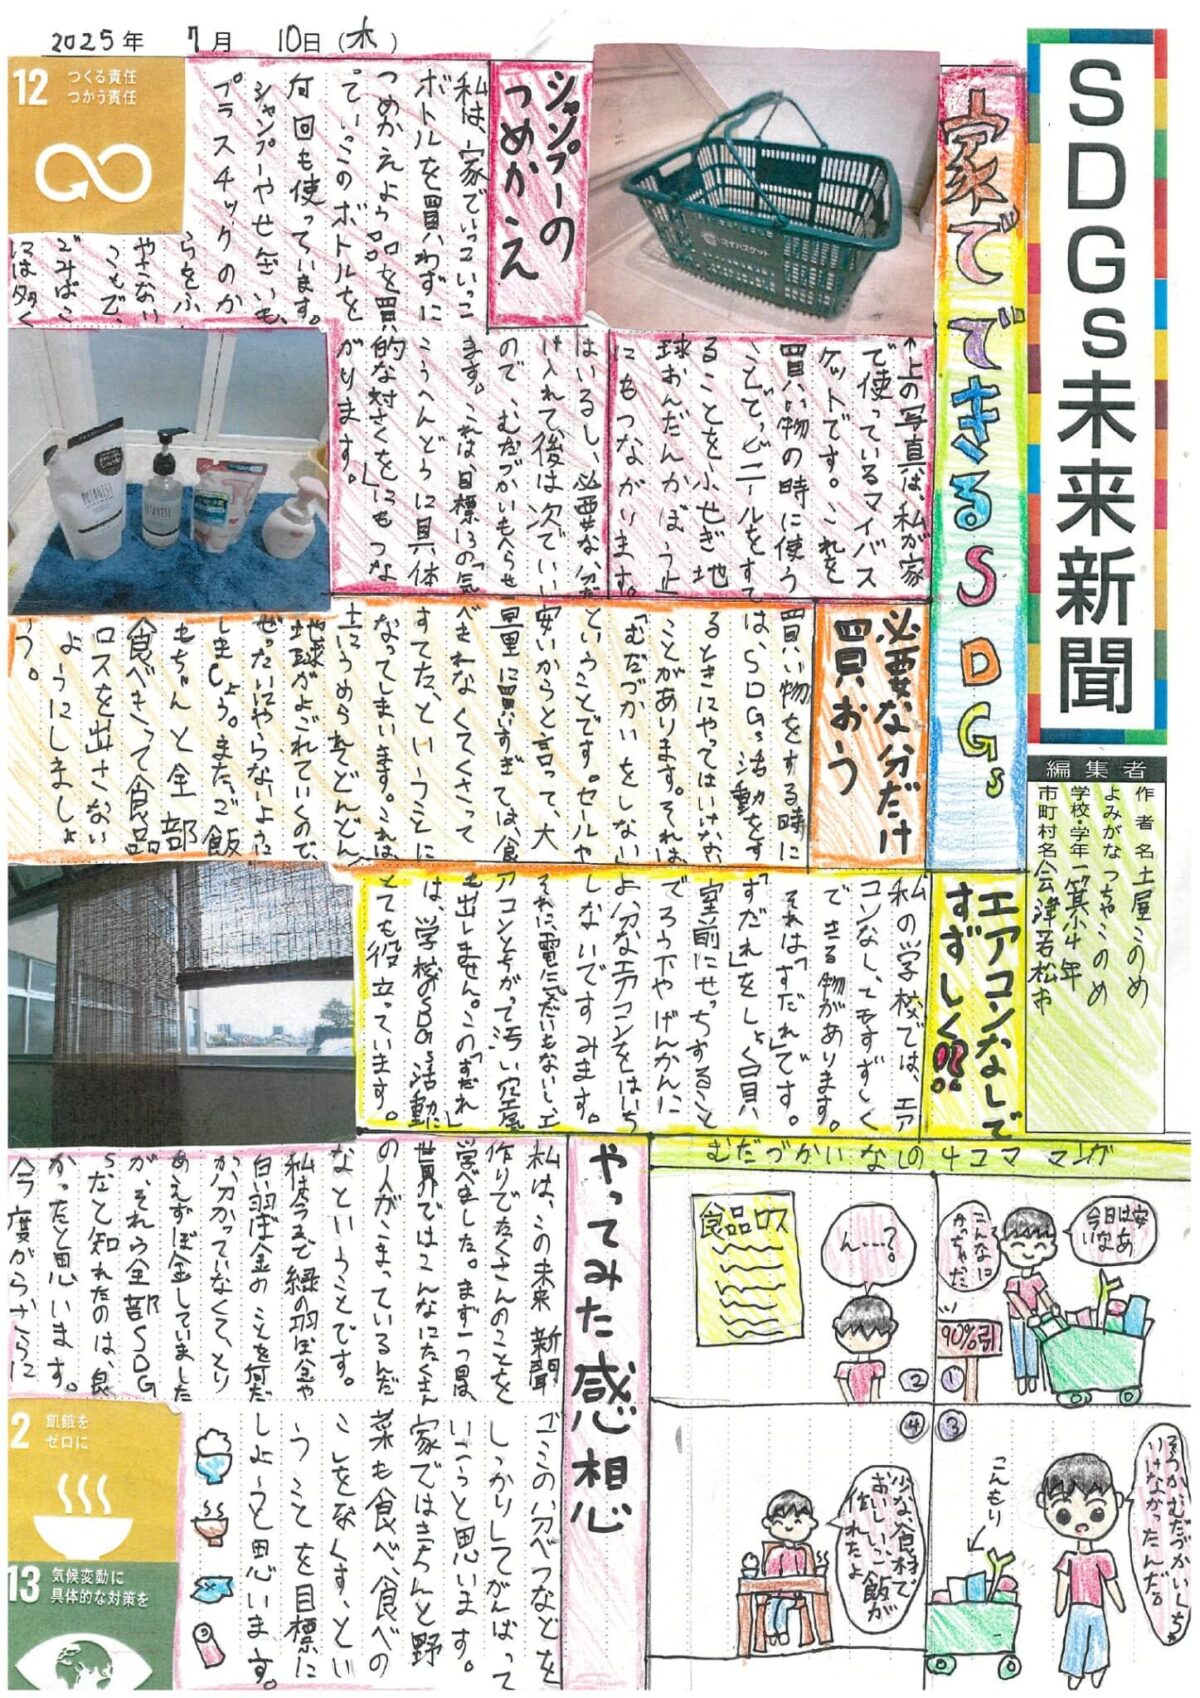 2025年 7月 10日(木)
SDGs未来新聞
編集者
作者名 土屋このめ
よみがな つちやこのめ
学校・学年 一箕小4年
市町村名 会津若松市
家でできるSDGs
↑上の写真は、私が家
で使っているマイバス
ケットです。これを
買い物の時に使う
ことでビニールをすて
ることをふせぎ地
球おんだんかぼう止
にもつながります。
マイバスケット
シャンプーの
つめかえ
私は、家でいっこいっこ
ボトルを買わずに
つめかえよう品を買
っていっこのボトルを
何回も使っています。
シャンプーやせっけんも、
プラスチックのか
らをふ
やさない
ことで、
ごみばこ
には多く
はいるし、必要な分だ
け入れて後は次でいい
ので、むだづかいもへらせ
ます。これは、目標13の「気
こうへんどうに具体
的な対さくを」にもつな
がります。
12 つくる責任
つかう責任
必要な分だけ
買おう
買い物をする時に
は、SDGs活動をす
るときにやってはいけない
ことがあります。それは
「むだづかいをしない」
ということです。セールや
安いからと言って、大
量に買いすぎては、食
べきれなくてくさって
すてた、ということに
なってしまいます。これは
土にうめられてどんどん
地球がよごれていくので
ぜったいにやらないように
しましょう。また、ご飯
もちゃんと全部
食べきって食品
ロスを出さない
ようにしましょ
う。
エアコンなしで
すずしく!?
私の学校では、エア
コンなしですずしく
できる物があります。
それは「すだれ」です。
「すだれ」をしょく員
室前にせっちすること
でろう下やげんかんに
よ分なエアコンをはいち
しないですみます。
それに電気だいもないし、エ
アコンとちがって汚い空気
も出しません。この「すだれ」
は、学校のSDGs活動に
とても役立っています。
むだづかいなしの4コママンガ
①
今日は安
いなあ
こんなに
かっちゃった
90%引
②
食品ロス
ん…?
③
そっか、むだづかいしちゃ
いけなかったんだ。
こんもり
④
少な食材で
おいしいご飯が
作れたよ
やってみた感想
私は、この未来新聞
作りでたくさんのことを
学べました。まず一つ目は、
世界ではこんなにたくさん
の人がこまっているんだ
なということです。
私は今まで緑の羽ぼ金や
白い羽ぼ金のことを何だ
か分かっていなくて、とり
あえずぼ金していました
が、それら全部SDG
sだと知れたのは、良
かったと思います。
今度からさらに
ゴミの分べつなどを
しっかりしてがんばって
いこうと思います。
家ではきちんと野
菜も食べ、食べの
こしをなくす、とい
うことを目標に
しようと思います。
2 飢餓を
ゼロに
13 気候変動に
具体的な対策を